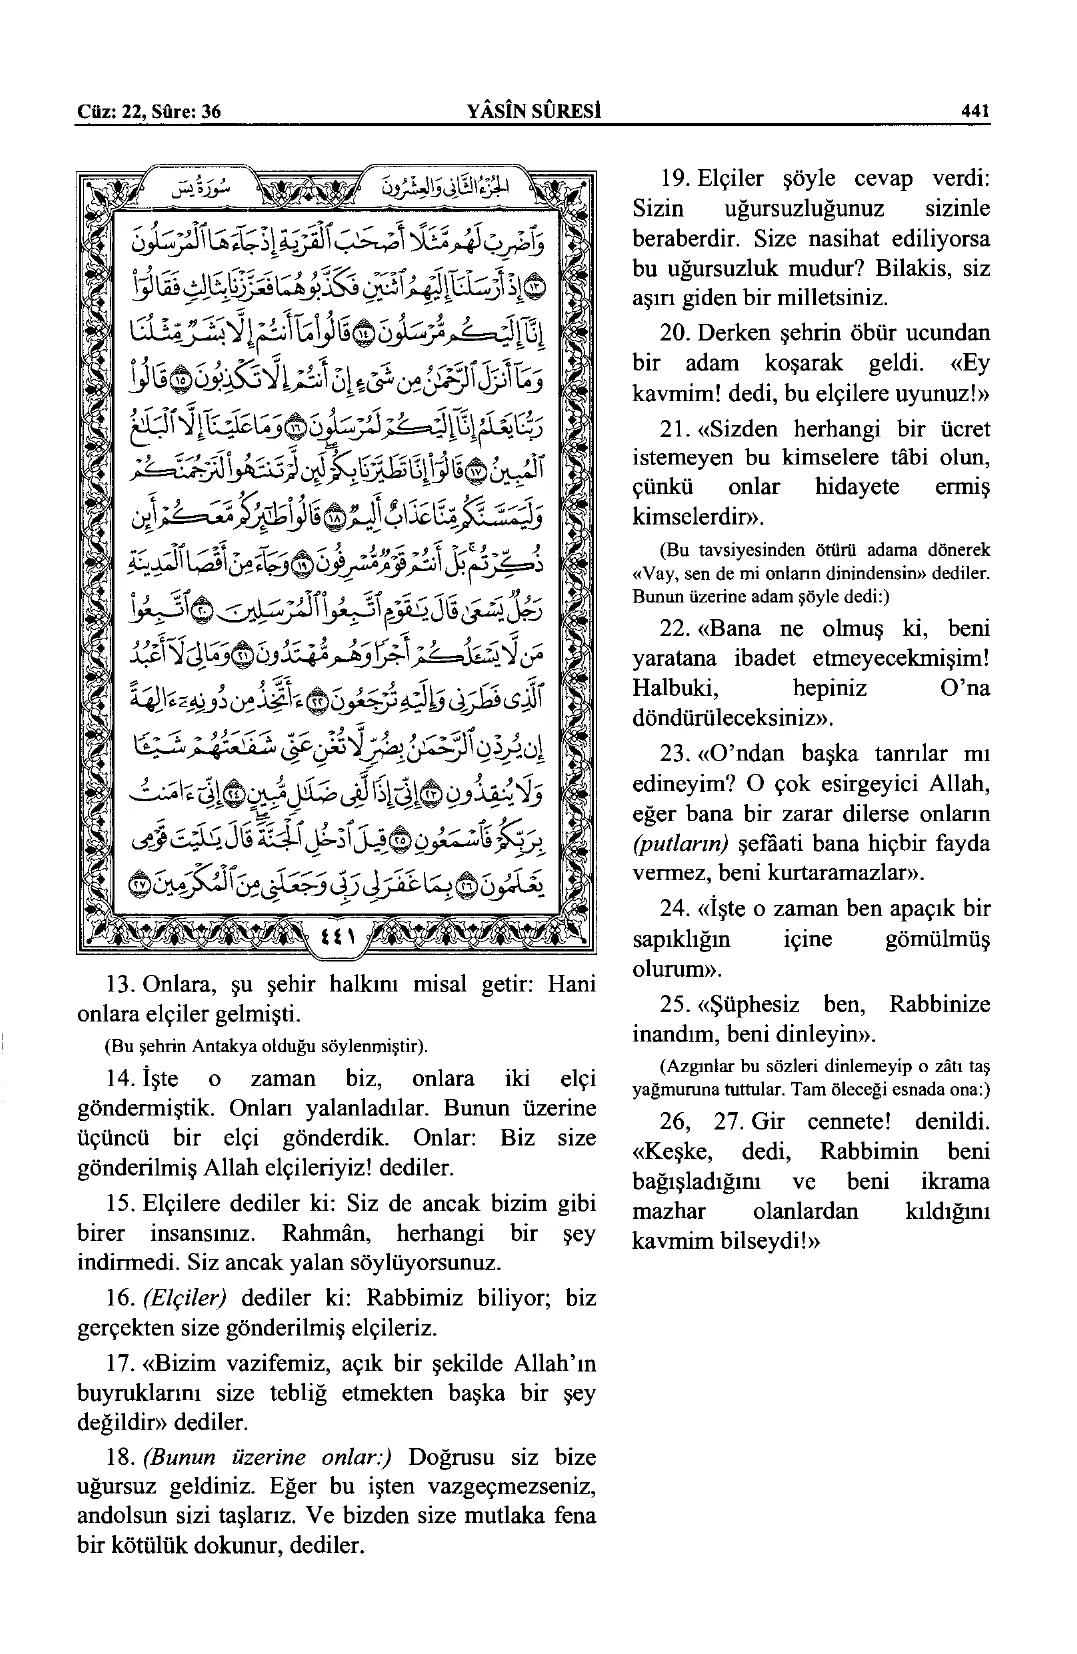 Cüz: 22, Sûre: 36 YÂSÎN SÛRESİ 441
سُورَةُ يسٓ الجُزْءُ الثَّانِي وَالعِشْرُون
وَاضْرِبْ لَهُمْ مَثَلًا أَصْحَٰبَ الْقَرْيَةِ إِذْ جَآءَهَا الْمُرْسَلُونَ
﴿١٣﴾ إِذْ أَرْسَلْنَآ إِلَيْهِمُ اثْنَيْنِ فَكَذَّبُوهُمَا فَعَزَّزْنَا بِثَالِثٍ فَقَالُوٓا
إِنَّآ إِلَيْكُم مُّرْسَلُونَ ﴿١٤﴾ قَالُوا مَآ أَنتُمْ إِلَّا بَشَرٌ مِّثْلُنَا
وَمَآ أَنزَلَ الرَّحْمَٰنُ مِن شَىْءٍ إِنْ أَنتُمْ إِلَّا تَكْذِبُونَ ﴿١٥﴾ قَالُوا
رَبُّنَا يَعْلَمُ إِنَّآ إِلَيْكُمْ لَمُرْسَلُونَ ﴿١٦﴾ وَمَا عَلَيْنَآ إِلَّا الْبَلَٰغُ
الْمُبِينُ ﴿١٧﴾ قَالُوٓا إِنَّا تَطَيَّرْنَا بِكُمْ لَئِن لَّمْ تَنتَهُوا لَنَرْجُمَنَّكُمْ
وَلَيَمَسَّنَّكُم مِّنَّا عَذَابٌ أَلِيمٌ ﴿١٨﴾ قَالُوا طَٰٓئِرُكُم مَّعَكُمْ أَئِن
ذُكِّرْتُم بَلْ أَنتُمْ قَوْمٌ مُّسْرِفُونَ ﴿١٩﴾ وَجَآءَ مِنْ أَقْصَا الْمَدِينَةِ
رَجُلٌ يَسْعَىٰ قَالَ يَٰقَوْمِ اتَّبِعُوا الْمُرْسَلِينَ ﴿٢٠﴾ اتَّبِعُوا
مَن لَّا يَسْـَٔلُكُمْ أَجْرًا وَهُم مُّهْتَدُونَ ﴿٢١﴾ وَمَا لِىَ لَآ أَعْبُدُ
الَّذِى فَطَرَنِى وَإِلَيْهِ تُرْجَعُونَ ﴿٢٢﴾ ءَأَتَّخِذُ مِن دُونِهِٓ ءَالِهَةً
إِن يُرِدْنِ الرَّحْمَٰنُ بِضُرٍّ لَّا تُغْنِ عَنِّى شَفَٰعَتُهُمْ شَيْـًٔا
وَلَا يُنقِذُونِ ﴿٢٣﴾ إِنِّىٓ إِذًا لَّفِى ضَلَٰلٍ مُّبِينٍ ﴿٢٤﴾ إِنِّىٓ ءَامَنتُ
بِرَبِّكُمْ فَاسْمَعُونِ ﴿٢٥﴾ قِيلَ ادْخُلِ الْجَنَّةَ قَالَ يَٰلَيْتَ قَوْمِى
يَعْلَمُونَ ﴿٢٦﴾ بِمَا غَفَرَ لِى رَبِّى وَجَعَلَنِى مِنَ الْمُكْرَمِينَ ﴿٢٧﴾
٤٤١
13. Onlara, şu şehir halkını misal getir: Hani
onlara elçiler gelmişti.
(Bu şehrin Antakya olduğu söylenmiştir).
14. İşte o zaman biz, onlara iki elçi
göndermiştik. Onları yalanladılar. Bunun üzerine
üçüncü bir elçi gönderdik. Onlar: Biz size
gönderilmiş Allah elçileriyiz! dediler.
15. Elçilere dediler ki: Siz de ancak bizim gibi
birer insansınız. Rahmân, herhangi bir şey
indirmedi. Siz ancak yalan söylüyorsunuz.
16. (Elçiler) dediler ki: Rabbimiz biliyor; biz
gerçekten size gönderilmiş elçileriz.
17. «Bizim vazifemiz, açık bir şekilde Allah'ın
buyruklarını size tebliğ etmekten başka bir şey
değildir» dediler.
18. (Bunun üzerine onlar:) Doğrusu siz bize
uğursuz geldiniz. Eğer bu işten vazgeçmezseniz,
andolsun sizi taşlarız. Ve bizden size mutlaka fena
bir kötülük dokunur, dediler.
19. Elçiler şöyle cevap verdi:
Sizin uğursuzluğunuz sizinle
beraberdir. Size nasihat ediliyorsa
bu uğursuzluk mudur? Bilakis, siz
aşırı giden bir milletsiniz.
20. Derken şehrin öbür ucundan
bir adam koşarak geldi. «Ey
kavmim! dedi, bu elçilere uyunuz!»
21. «Sizden herhangi bir ücret
istemeyen bu kimselere tâbi olun,
çünkü onlar hidayete ermiş
kimselerdir».
(Bu tavsiyesinden ötürü adama dönerek
«Vay, sen de mi onların dinindensin» dediler.
Bunun üzerine adam şöyle dedi:)
22. «Bana ne olmuş ki, beni
yaratana ibadet etmeyecekmişim!
Halbuki, hepiniz O'na
döndürüleceksiniz».
23. «O'ndan başka tanrılar mı
edineyim? O çok esirgeyici Allah,
eğer bana bir zarar dilerse onların
(putların) şefâati bana hiçbir fayda
vermez, beni kurtaramazlar».
24. «İşte o zaman ben apaçık bir
sapıklığın içine gömülmüş
olurum».
25. «Şüphesiz ben, Rabbinize
inandım, beni dinleyin».
(Azgınlar bu sözleri dinlemeyip o zâtı taş
yağmuruna tuttular. Tam öleceği esnada ona:)
26, 27. Gir cennete! denildi.
«Keşke, dedi, Rabbimin beni
bağışladığını ve beni ikrama
mazhar olanlardan kıldığını
kavmim bilseydi!»